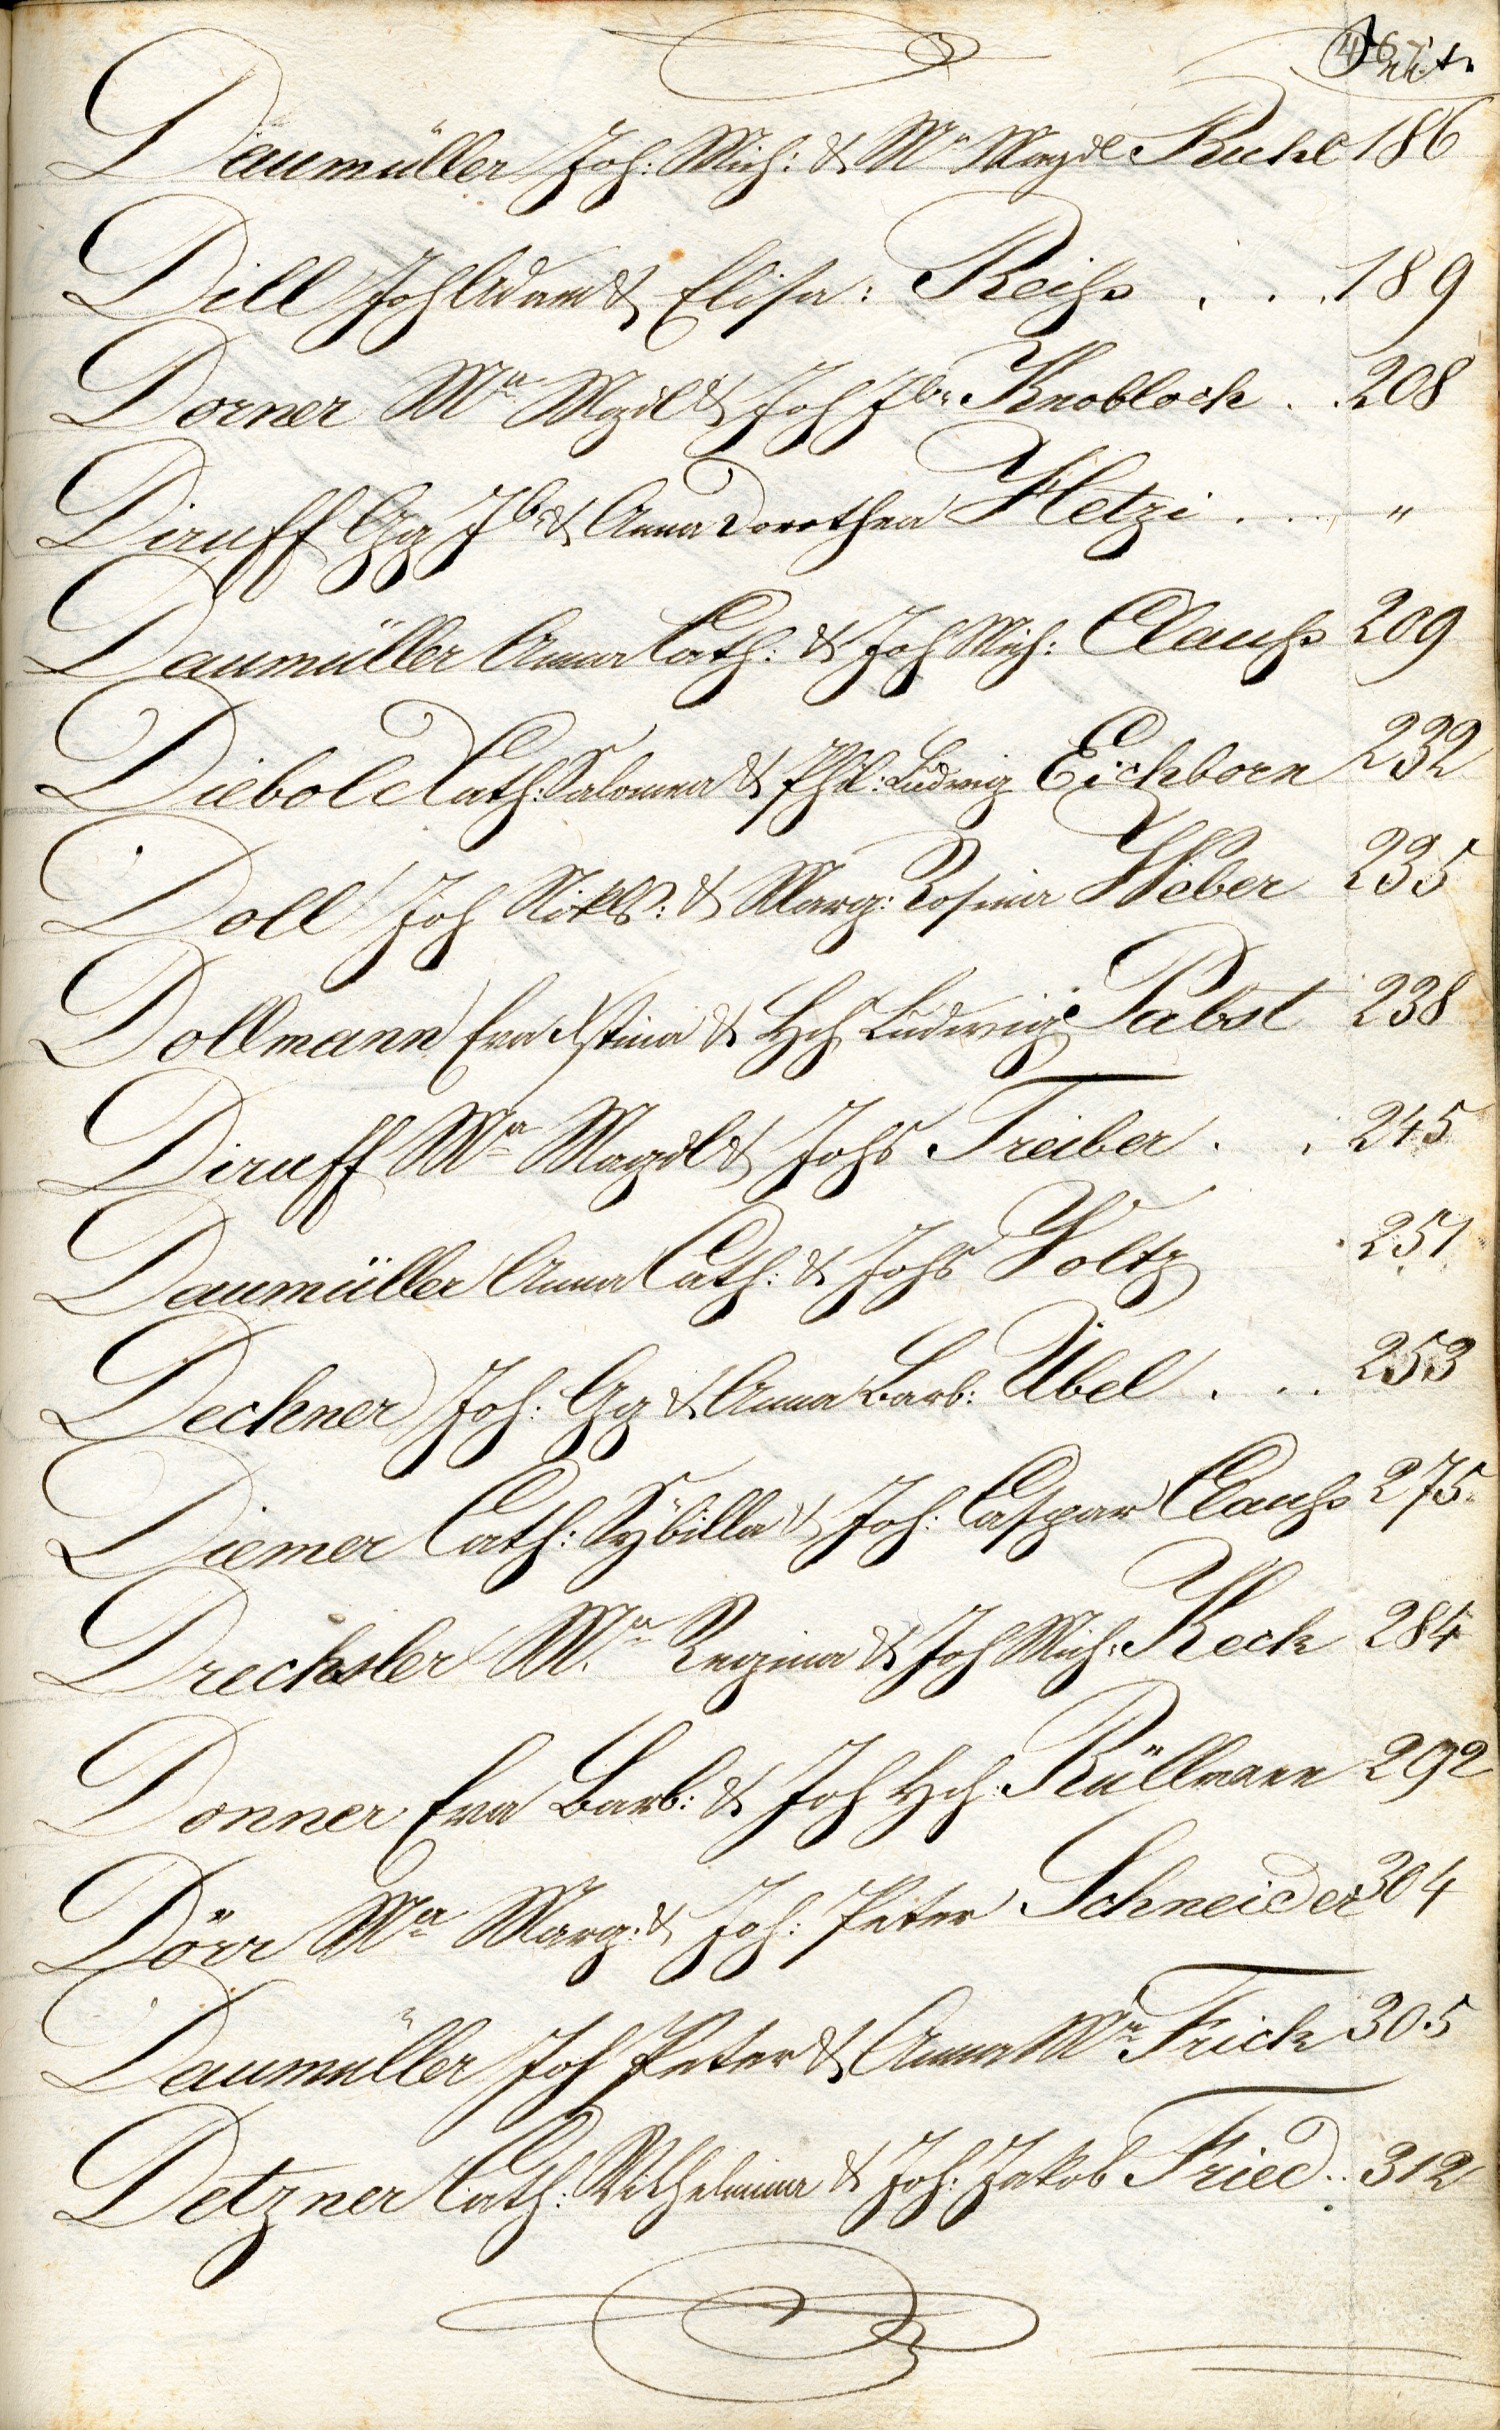 Seite
Daumüller Joh: Mich: & Ma Magdl Kuhl 186
Dill Joh Adam & Elisa: Reihs . . . 189
Dorner Ma Mgdl & Joh Jb: Knobloch . . 208
Diruff Gg Jb: & Anna Dorothea Hetzi . . . "
Daumüller Anna Cath: & Joh Mich: Clauhs 209
Diebold Cath: Salomea & Phil: Ludwig Eichborn 232
Doll Joh Nikls: & Marg: Rosina Weber 235
Dollmann Eva Xstina & Hch Ludwig Pabst 238
Diruff Ma Magdl & Johs Treiber . . 245
Daumüller Anna Cath: & Johs Voltz . 251
Dechner Joh: Gg & Anna Barb: Übel . . . 253
Diemer Cath: Sybilla & Joh: Caspar Clauhs 275
Drechsler Ma Regina & Joh Mich: Keck 284
Donner Eva Barb: & Joh Hch: Rüllmann 292
Dörr Ma Marg: & Joh: Peter Schneider 304
Daumüller Joh Peter & Anna Ma Frick 305
Detzner Cath: Wilhelmina & Joh: Jakob Fried . . 312